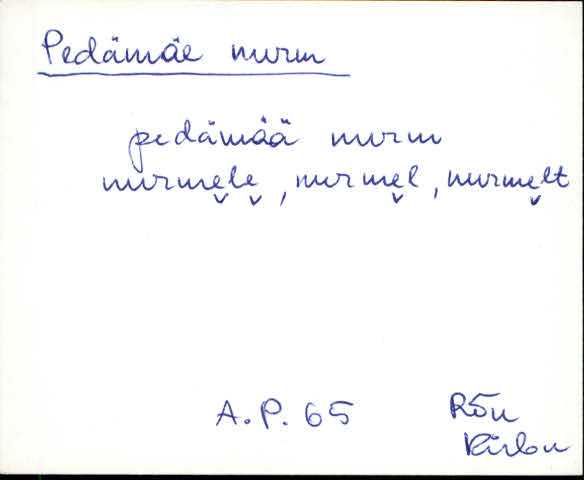 Pedämäe nurm
pedämää nurm
nurme̬le̬, nurme̬l, nurme̬lt
A.P. 65 Rõu